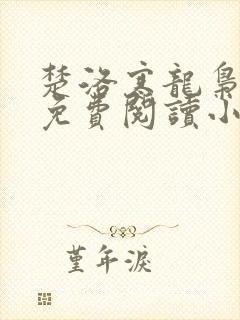 楚洛寒龍梟
免費閱讀小
堇年淚